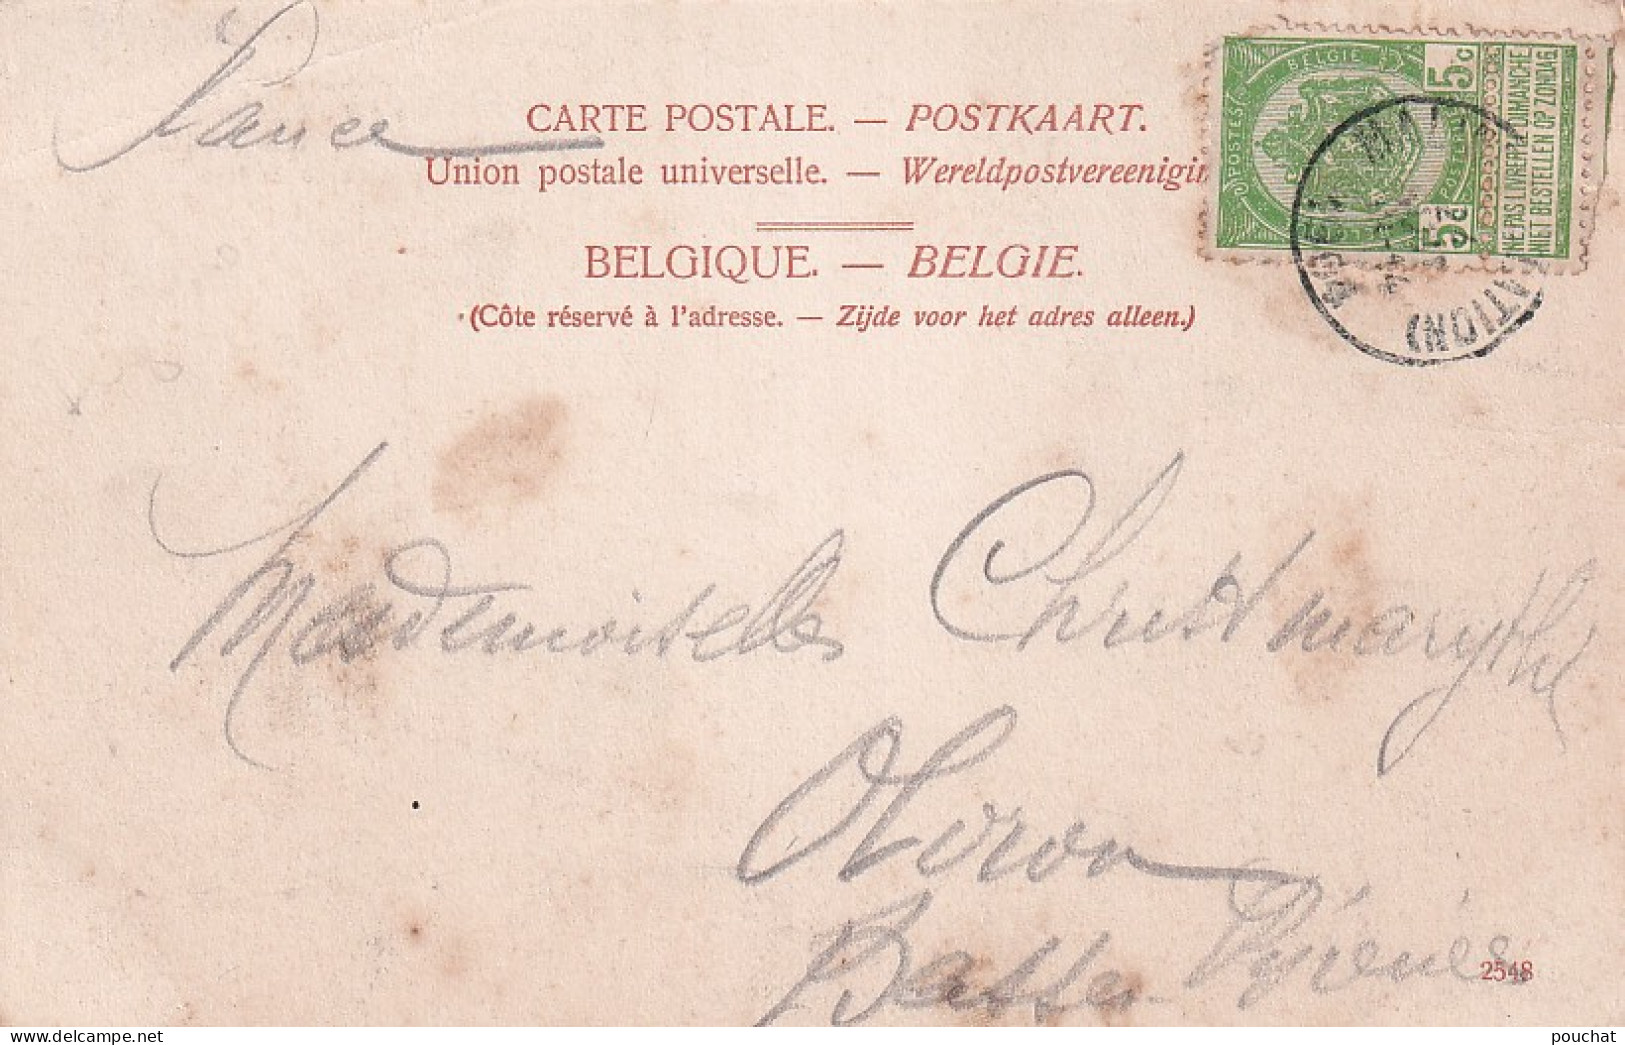 France
CARTE POSTALE. — POSTKAART.
Union postale universelle. — Wereldpostvereenigin
BELGIQUE. — BELGIE.
(Côte réservé à l'adresse. — Zijde voor het adres alleen.)
POSTES
BELGIE
POSTERIJEN
5 c
5
NE PAS LIVRER LE DIMANCHE
NIET BESTELLEN OP ZONDAG
Mademoiselle Christ
Oloron
Basses Pyrénées
2548
pouchat